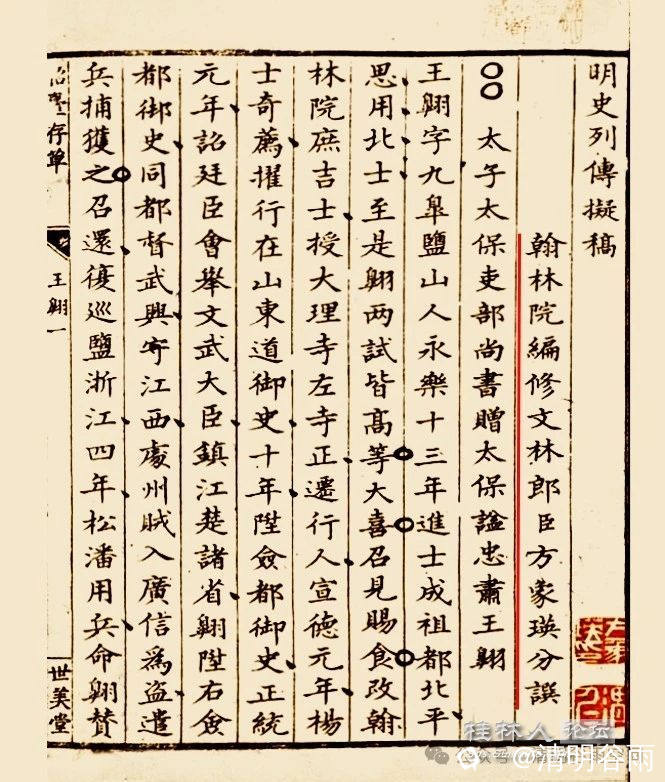 明史列傳擬稿
翰林院編修文林郎臣方象瑛分譔
太子太保吏部尚書贈太保諡忠肅王翺
王翺字九臯鹽山人永樂十三年進士成祖都北平
思用北士至是翺两試皆髙等大喜召見賜食改翰
林院庶吉士授大理寺左寺正遷行人宣德元年楊
士奇薦擢行在山東道御史十年陞僉都御史正統
元年詔廷臣會舉文武大臣鎮江楚諸省翺陞右僉
都御史同都督武興守江西處州賊入廣信爲盜遣
兵捕獲之召還復巡鹽浙江四年松潘用兵命翺賛
王翺一
世美堂
桂林人论坛
@清明谷雨